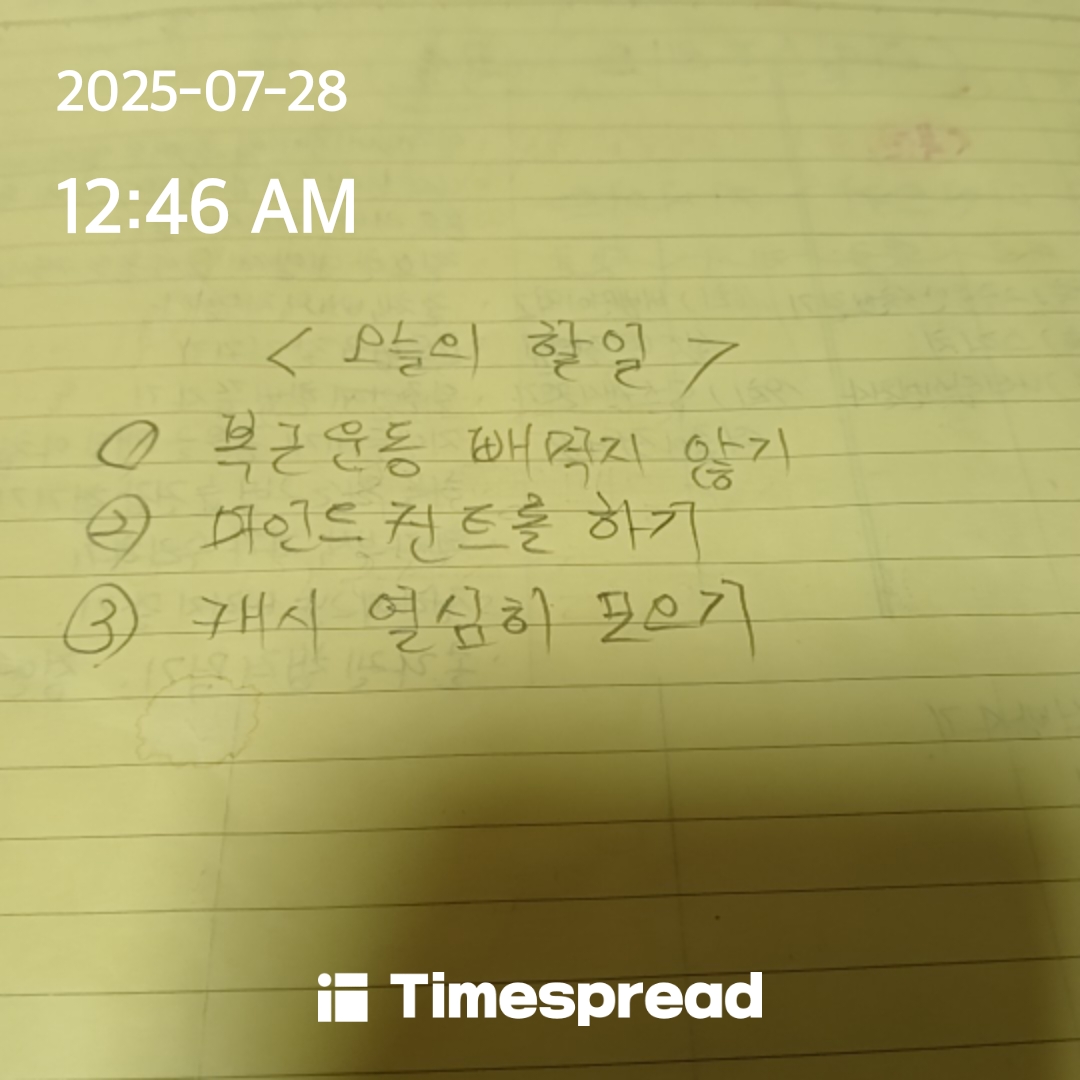 2025-07-28
12:46 AM
< 오늘의 할일 >
① 복근운동 빼먹지 않기
② 마인드 컨트롤 하기
③ 캐시 열심히 모으기
Timespread